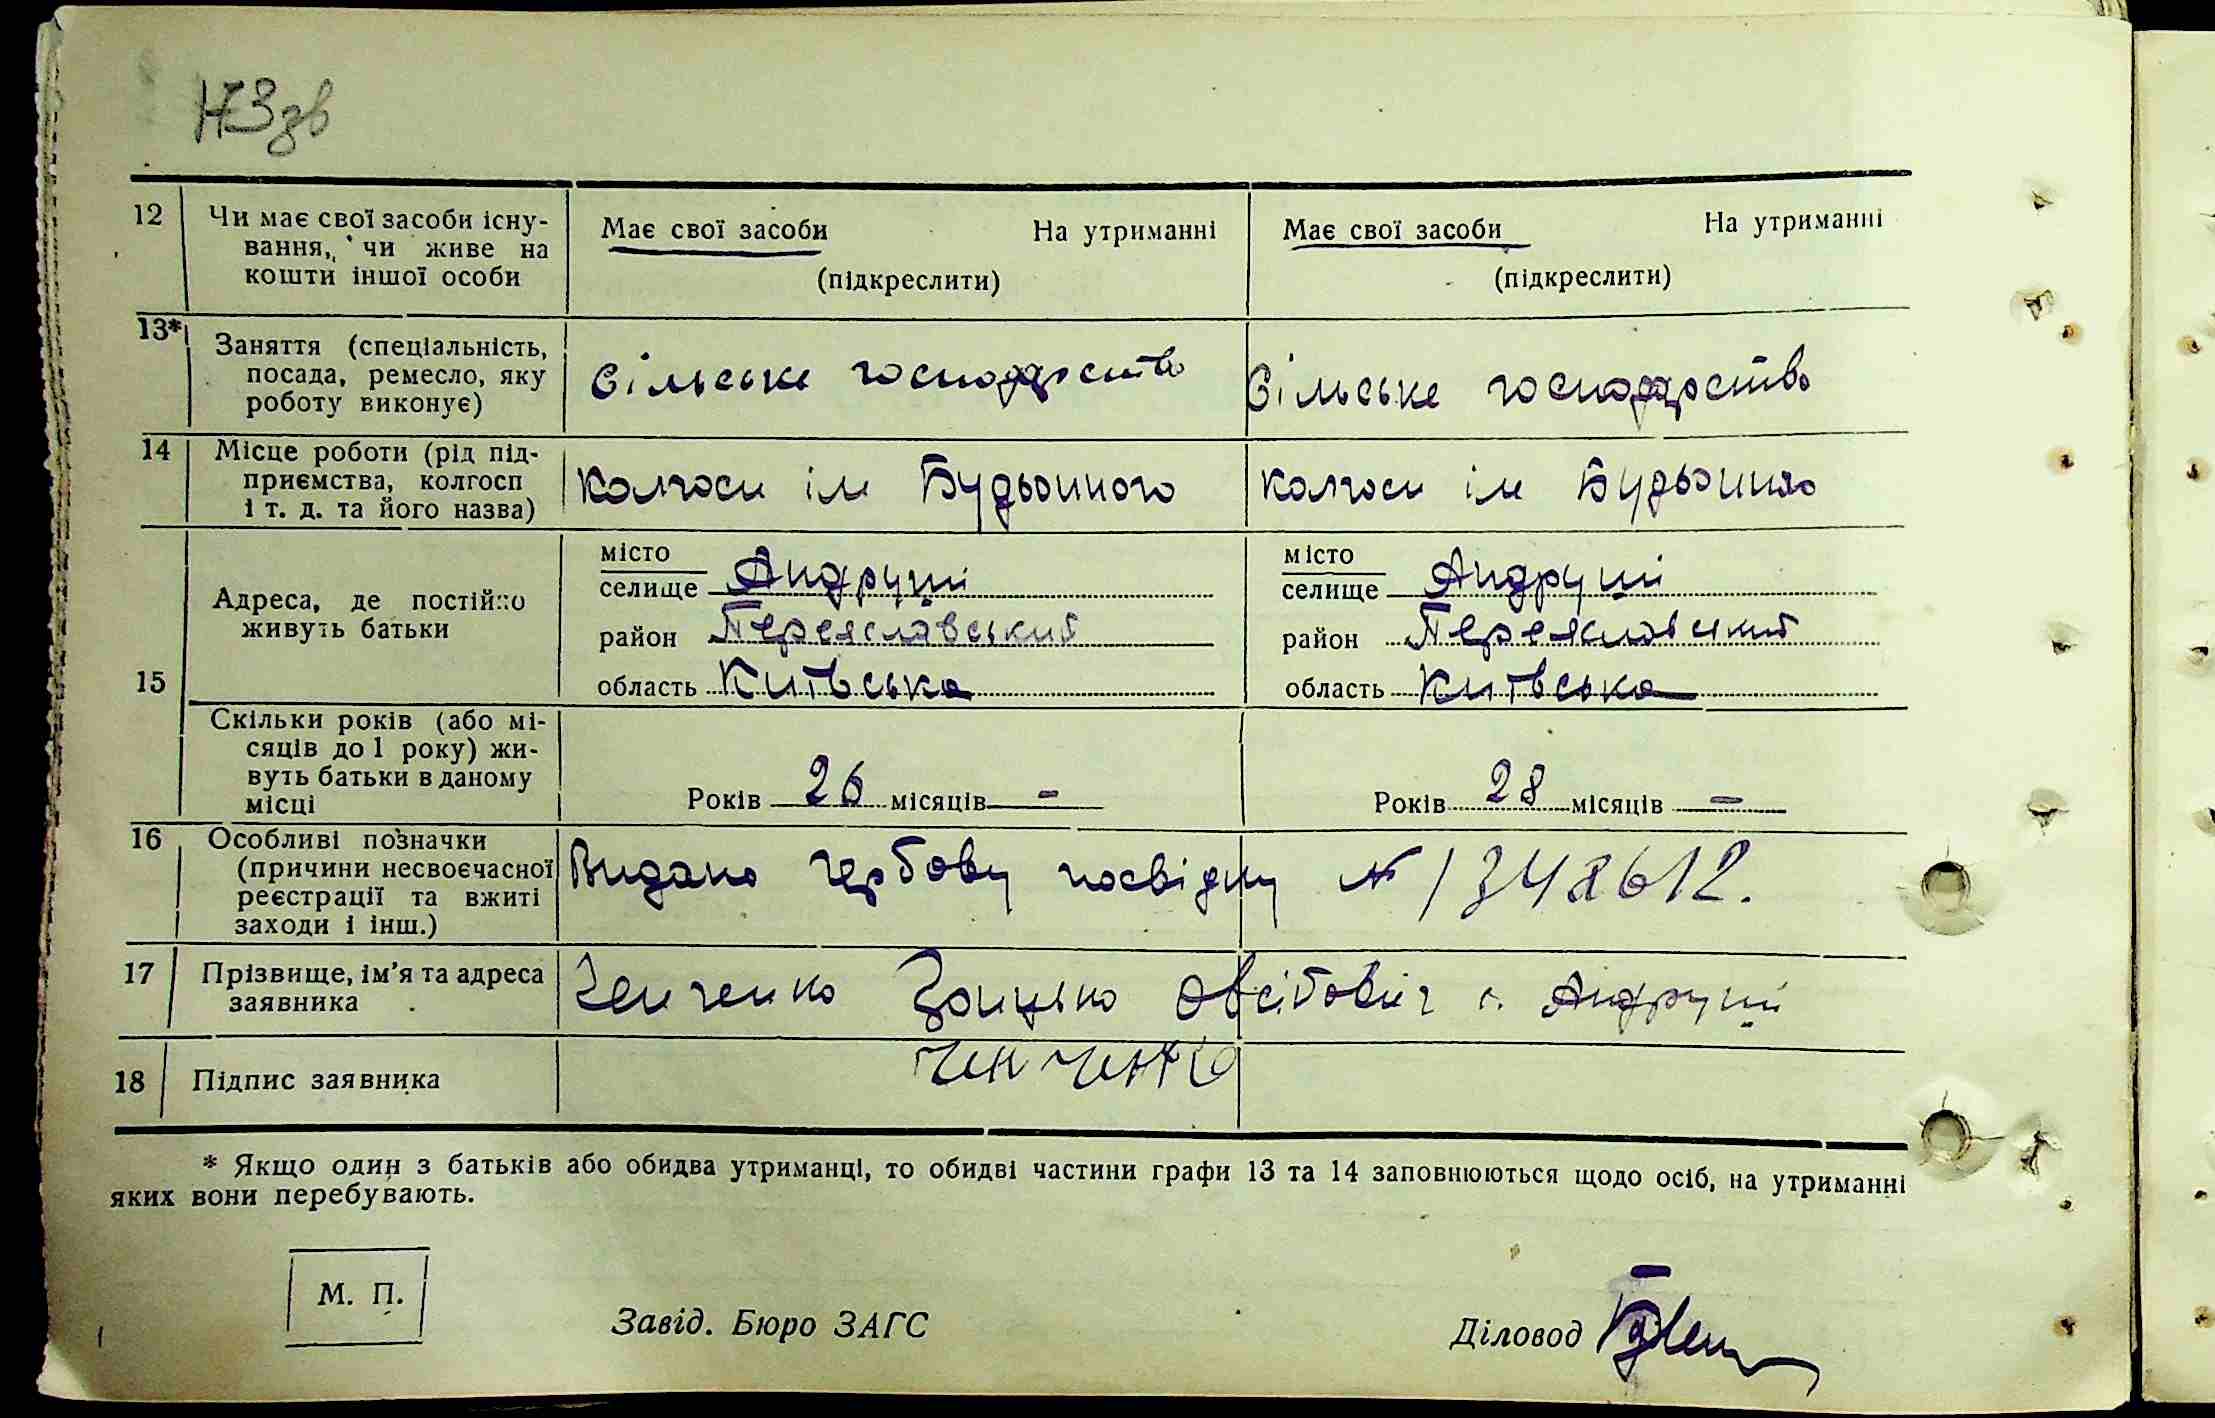 173 зв
12 Чи має свої засоби існу-
вання, чи живе на
кошти іншої особи
Має свої засоби На утриманні
(підкреслити)
Має свої засоби На утриманні
(підкреслити)
13* Заняття (спеціальність,
посада, ремесло, яку
роботу виконує)
Сільське господарство
Сільське господарство
14 Місце роботи (рід під-
приємства, колгосп
і т. д. та його назва)
Колгосп ім Будьонного
Колгосп ім Будьонного
15 Адреса, де постійно
живуть батьки
місто
селище Андруші
район Переяславський
область Київська
місто
селище Андруші
район Переяславський
область Київська
Скільки років (або мі-
сяців до 1 року) жи-
вуть батьки в даному
місці
Років 26 місяців -
Років 28 місяців -
16 Особливі позначки
(причини несвоєчасної
реєстрації та вжиті
заходи і інш.)
Видано гербову посвідку № 1342612.
17 Прізвище, ім'я та адреса
заявника
Ченченко Грицько Овсійович с. Андруші
18 Підпис заявника
Ченченко
* Якщо один з батьків або обидва утриманці, то обидві частини графи 13 та 14 заповнюються щодо осіб, на утриманні
яких вони перебувають.
М. П.
Завід. Бюро ЗАГС
Діловод